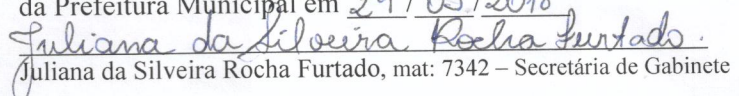 da Prefeitura Municipal em 29 / 03 / 2018
Juliana da Silveira Rocha Furtado.
Juliana da Silveira Rocha Furtado, mat: 7342 – Secretária de Gabinete